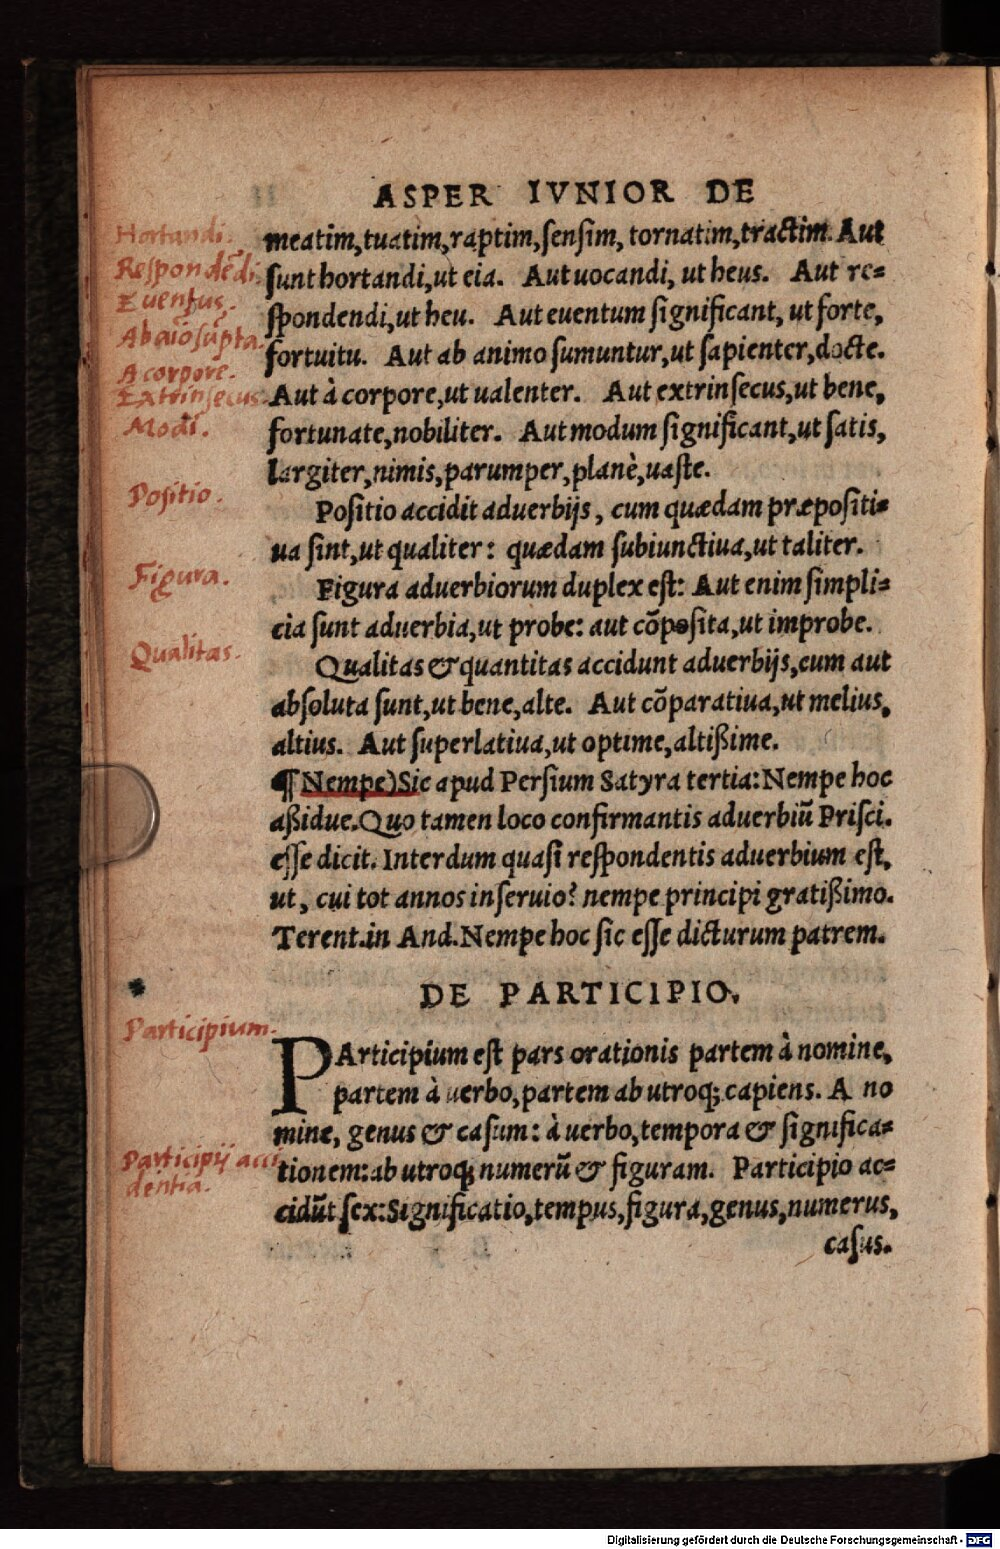 ASPER IVNIOR DE
Hortandi.
meatim,tuatim,raptim,ſenſim, tornatim,tractim. Aut
Reſpondēdi.
ſunt hortandi,ut eia. Aut uocandi, ut heus. Aut re-
Euentus.
ſpondendi,ut heu. Aut euentum ſignificant, ut forte,
Ab aīo sūpta.
fortuitu. Aut ab animo ſumuntur,ut ſapienter,docte.
A corpore.
Extrinſecus.
Aut à corpore,ut ualenter. Aut extrinſecus,ut bene,
Modi.
fortunate,nobiliter. Aut modum ſignificant,ut ſatis,
largiter,nimis,parumper,planè,uaſte.
Poſitio.
Poſitio accidit aduerbijs, cum quædam præpoſiti-
ua ſint,ut qualiter: quædam ſubiunctiua,ut taliter.
Figura.
Figura aduerbiorum duplex eſt: Aut enim ſimpli-
cia ſunt aduerbia,ut probe: aut cōpoſita,ut improbe.
Qualitas.
Qualitas & quantitas accidunt aduerbijs,cum aut
abſoluta ſunt,ut bene,alte. Aut cōparatiua,ut melius,
altius. Aut ſuperlatiua,ut optime,altißime.
¶ Nempe)Sic apud Perſium Satyra tertia: Nempe hoc
aßidue.Quo tamen loco confirmantis aduerbiū Priſci.
eſſe dicit. Interdum quaſi reſpondentis aduerbium eſt,
ut, cui tot annos inſeruio? nempe principi gratißimo.
Terent.in And.Nempe hoc ſic eſſe dicturum patrem.
DE PARTICIPIO.
Participium.
PArticipium eſt pars orationis partem à nomine,
partem à uerbo,partem ab utroq; capiens. A no
mine, genus & caſum: à uerbo,tempora & ſignifica-
Participij acci
dentia.
tionem:ab utroq; numerū & figuram. Participio ac-
cidūt ſex:Significatio,tempus,figura,genus,numerus,
caſus.
Digitalisierung gefördert durch die Deutsche Forschungsgemeinschaft - DFG